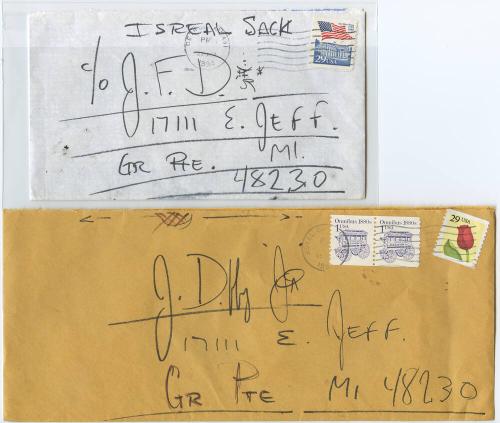 ISREAL SACK
29 USA
c/o J.F.D.
17111 E. JEFF.
GR PTE. MI.
48230
Omnibus 1880s Omnibus 1880s
1 USA 1 USA
29 USA
J.D. Jr
17111 E. JEFF.
GR PTE MI 48230